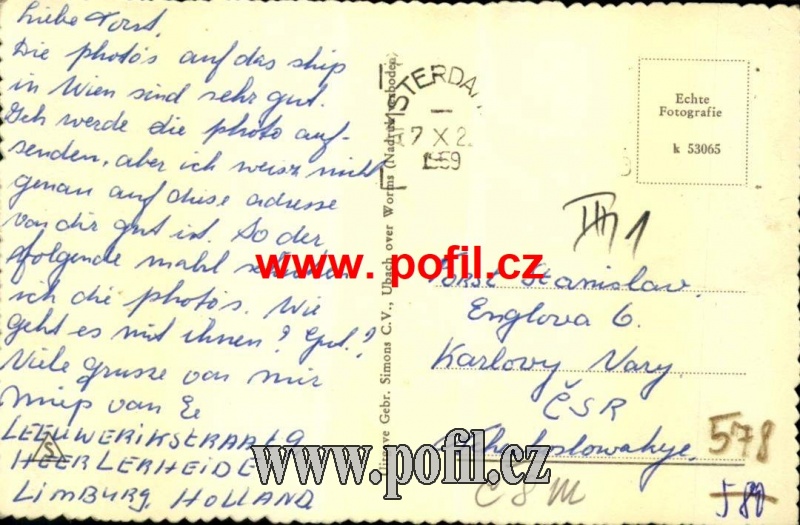 Liebe Forst,
Die photo's auf das ship
in Wien sind sehr gut.
Ich werde die photo auf-
senden, aber ich weisz nicht
genau auf diese adresse
von dir gut ist. So der
folgende mahl
ich die photo's. Wie
geht es mit ihnen? Gut?
Viele grusse von mir
Miep van Es
LEEUWERIKSTRAAT 9
HEERLERHEIDE
LIMBURG, HOLLAND
Uitgave Gebr. Simons C.V., Ubach over Worms (Nadruk verboden)
STERDA
7 X 2
1959
Echte
Fotografie
k 53065
1
Stanislav.
Englova 6.
Karlovy Vary
ČSR
578
580
Č 8 M
S
www.pofil.cz
www.pofil.cz